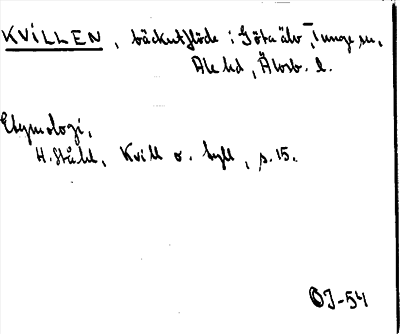 KVILLEN, bäckutflöde i Göta älv, Tunge sn,
Ale hd, Älvsb. l.
Etymologi,
H. Ståhl, Kvill o. tyll, s. 15.
OJ-54